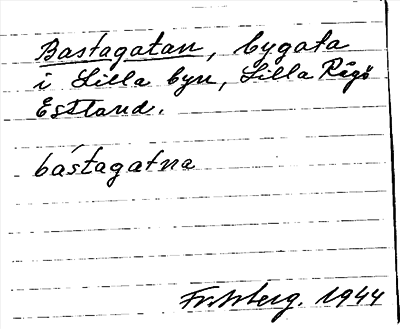 Bastagatan, bygata
i Lilla byn, Lilla Rågö
Estland.
bástagatna
1944